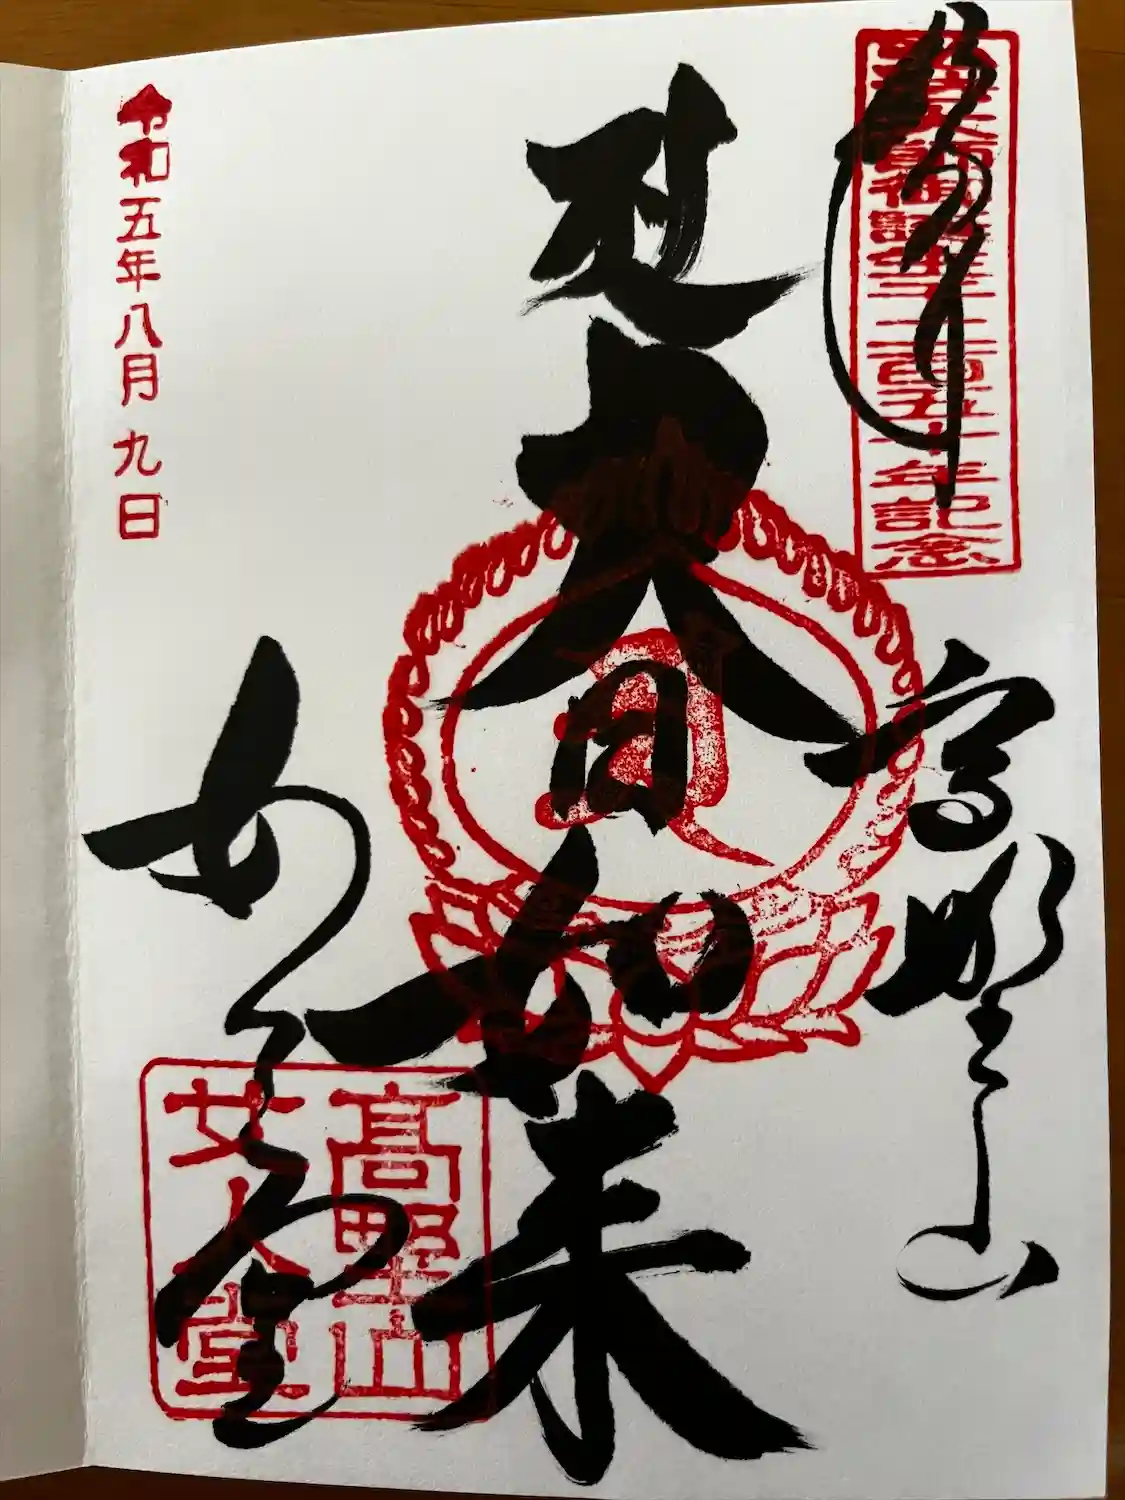 奉拝
弘法大師御誕生千二百五十年記念
高野山
大日如来
女人堂
高野山
女人堂
令和五年八月九日